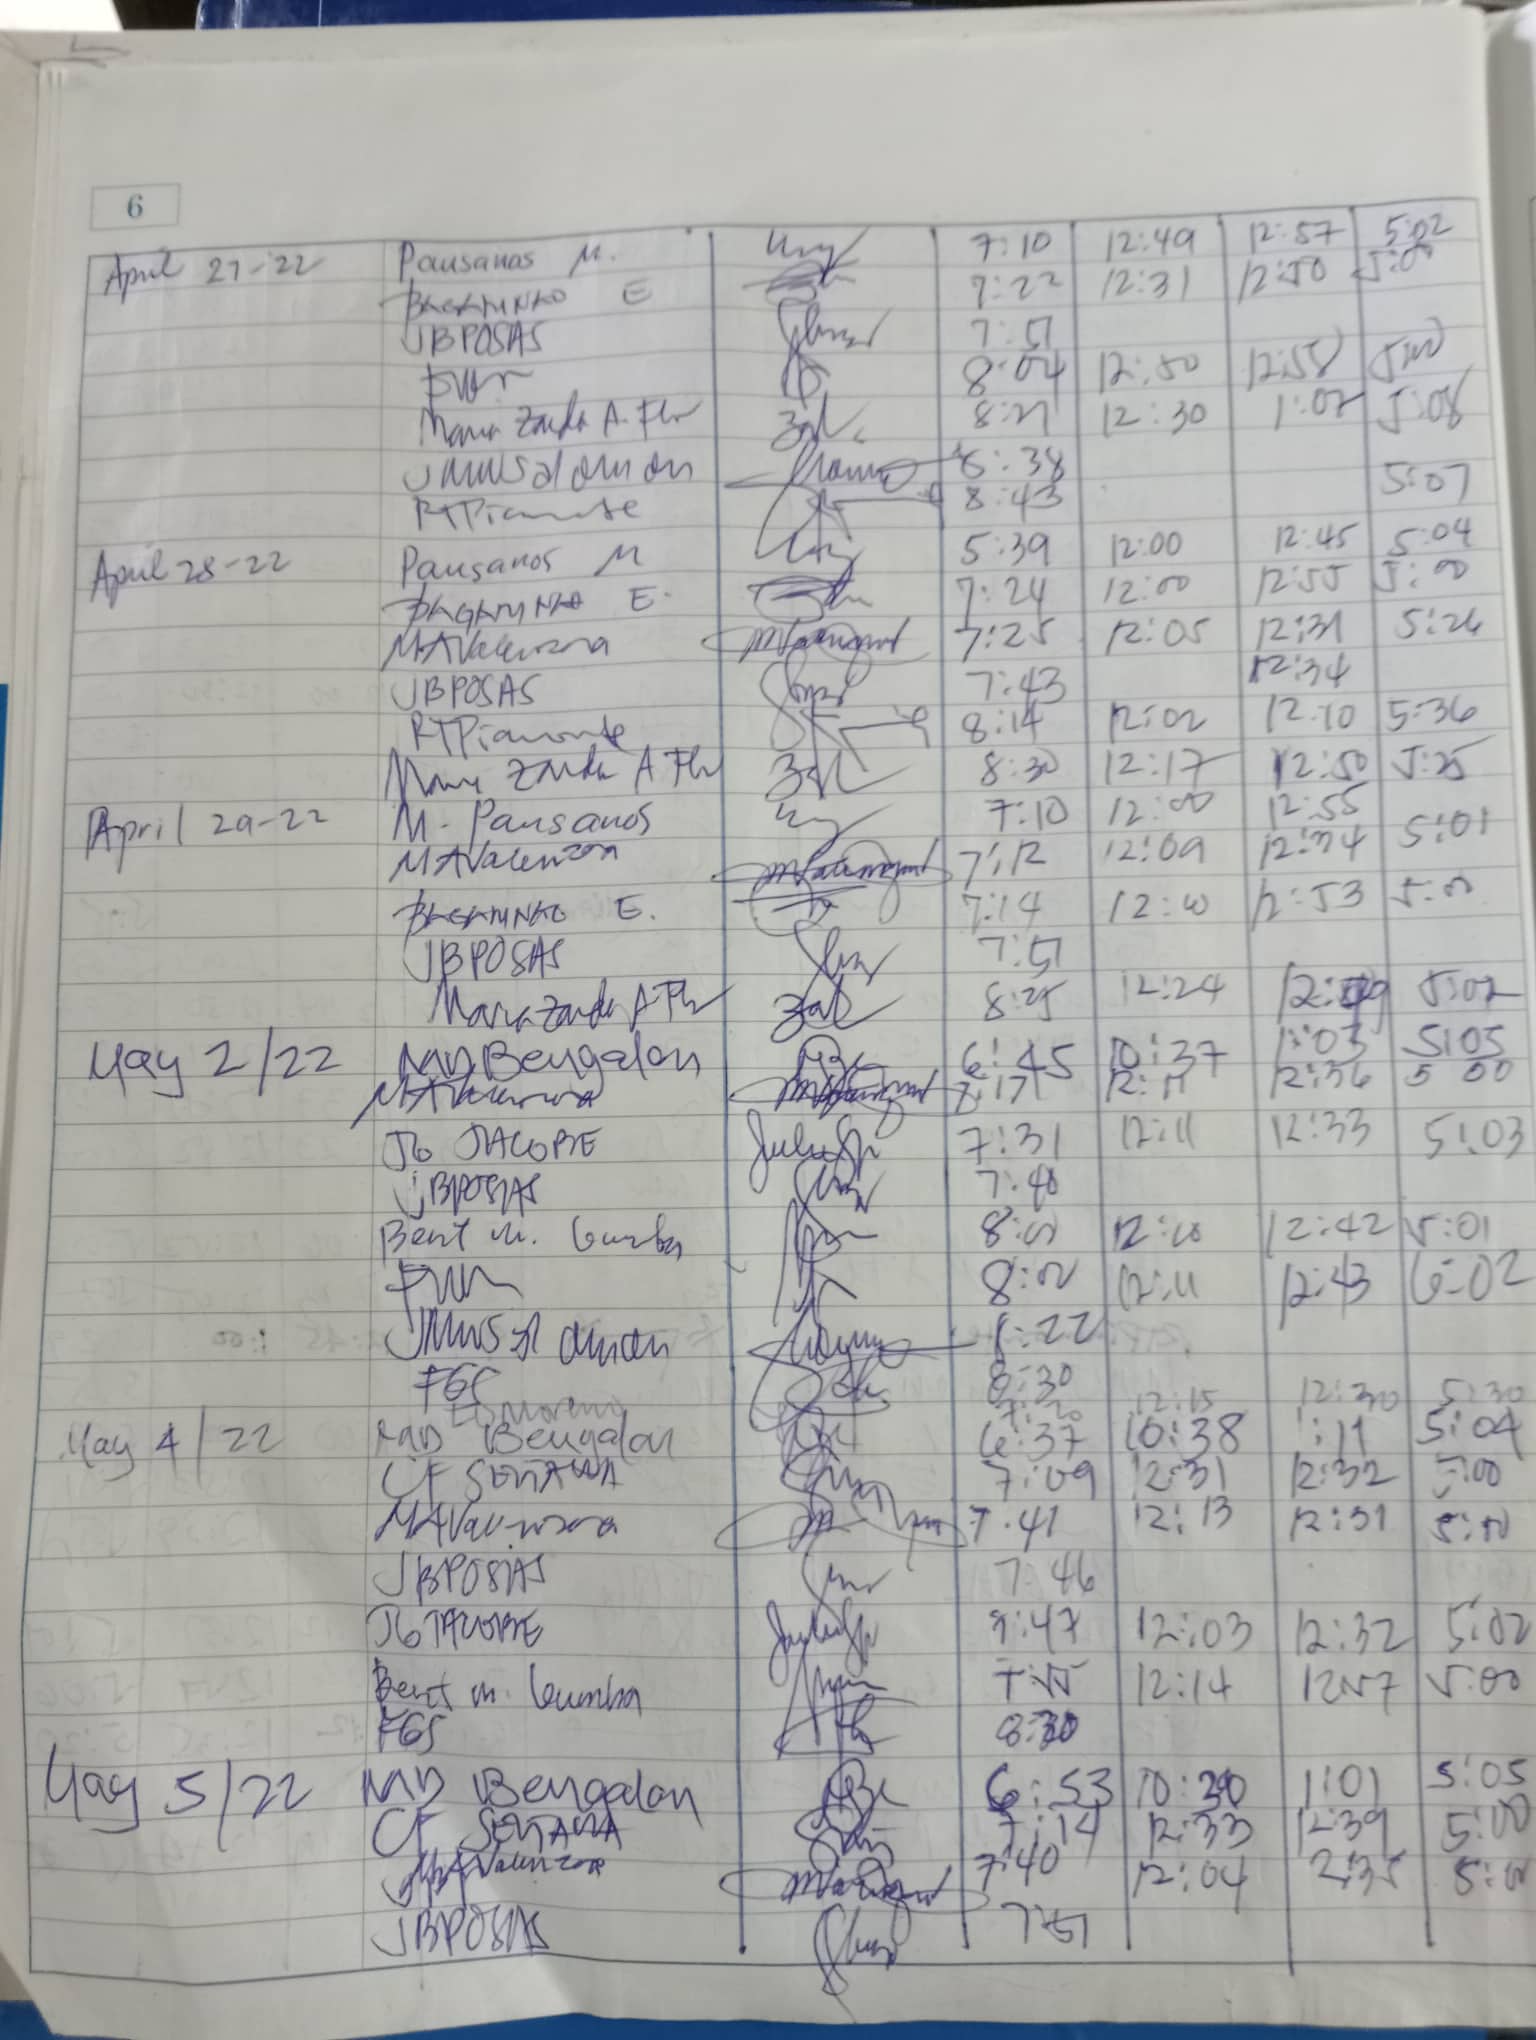 6
April 27-22 Pausanos M. 7:10 12:49 12:57 5:02
BAGAMNAO E 7:22 12:31 12:50 5:00
JBPOSAS 7:51
8:04 12:50 12:58
Maria Zaida A. Flr 8:21 12:30 1:02 5:08
8:38
RTPiamonte 8:43 5:07
April 28-22 Pausanos M 5:39 12:00 12:45 5:04
BAGAMNAO E. 7:24 12:00 12:55 5:00
MAValenzona 7:25 12:05 12:31 5:26
JBPOSAS 7:43 12:34
RTPiamonte 8:14 12:02 12:10 5:36
Maria Zaida A Flr 8:30 12:17 12:50 5:25
April 29-22 M. Pausanos 7:10 12:00 12:55 5:01
MAValenzona 7:12 12:09 12:34
BAGAMNAO E. 7:14 12:10 12:53 5:00
JBPOSAS 7:51
Maria Zaida A Flr 8:25 12:24 5:02
May 2/22 MD Bengalan 6:45 10:37 1:03 5:05
MAValenzona 7:17 12:11 12:36 5 00
JG JACOBE 7:31 12:11 12:33 5:03
JBPOSAS 7:40
Bert M. Gumba 8:00 12:10 12:42 5:01
8:02 12:11 12:43 6-02
8:22
FGS 8:30
Moreno 7:20 12:15 12:30 5:30
May 4/22 MD Bengalan 6:37 10:38 1:11 5:04
CF SENTANA 7:09 12:31 12:32 5:00
MAValenzona 7:41 12:13 12:31 5:00
JBPOSAS 7:46
JG JACOBE 7:47 12:03 12:32 5:02
Bert M. Gumba 7:55 12:14 12:57 5:00
FGS 8:30
May 5/22 MD Bengalan 6:53 10:30 1:01 5:05
CF SENTANA 7:14 12:33 12:39 5:00
MAValenzona 7:40 12:04 2:35
JBPOSAS 7:51